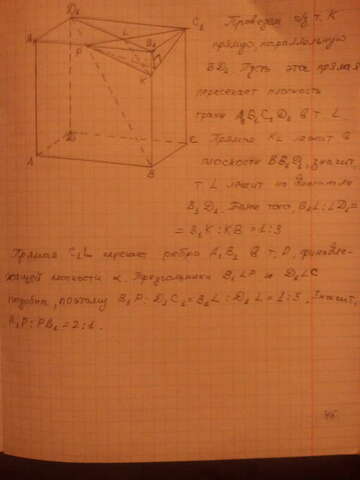 Проведем через т. K
прямую, параллельную
BD₁. Пусть эта прямая
пересекает плоскость
грани A₁B₁C₁D₁ в т. L.
Прямая KL лежит в
плоскости BB₁D₁, значит,
т. L лежит на диагонали
B₁D₁. Более того, B₁L : LD₁ =
= B₁K : KB = 1:3
Прямая C₁L пересекает ребро A₁B₁ в т. P, принадле-
жащей плоскости α. Треугольники B₁LP и D₁LC
подобны, поэтому B₁P : D₁C₁ = B₁L : D₁L = 1:3. Значит,
A₁P : PB₁ = 2:1.
D₁
C₁
A₁
L
P
B₁
K
D
C
A
B